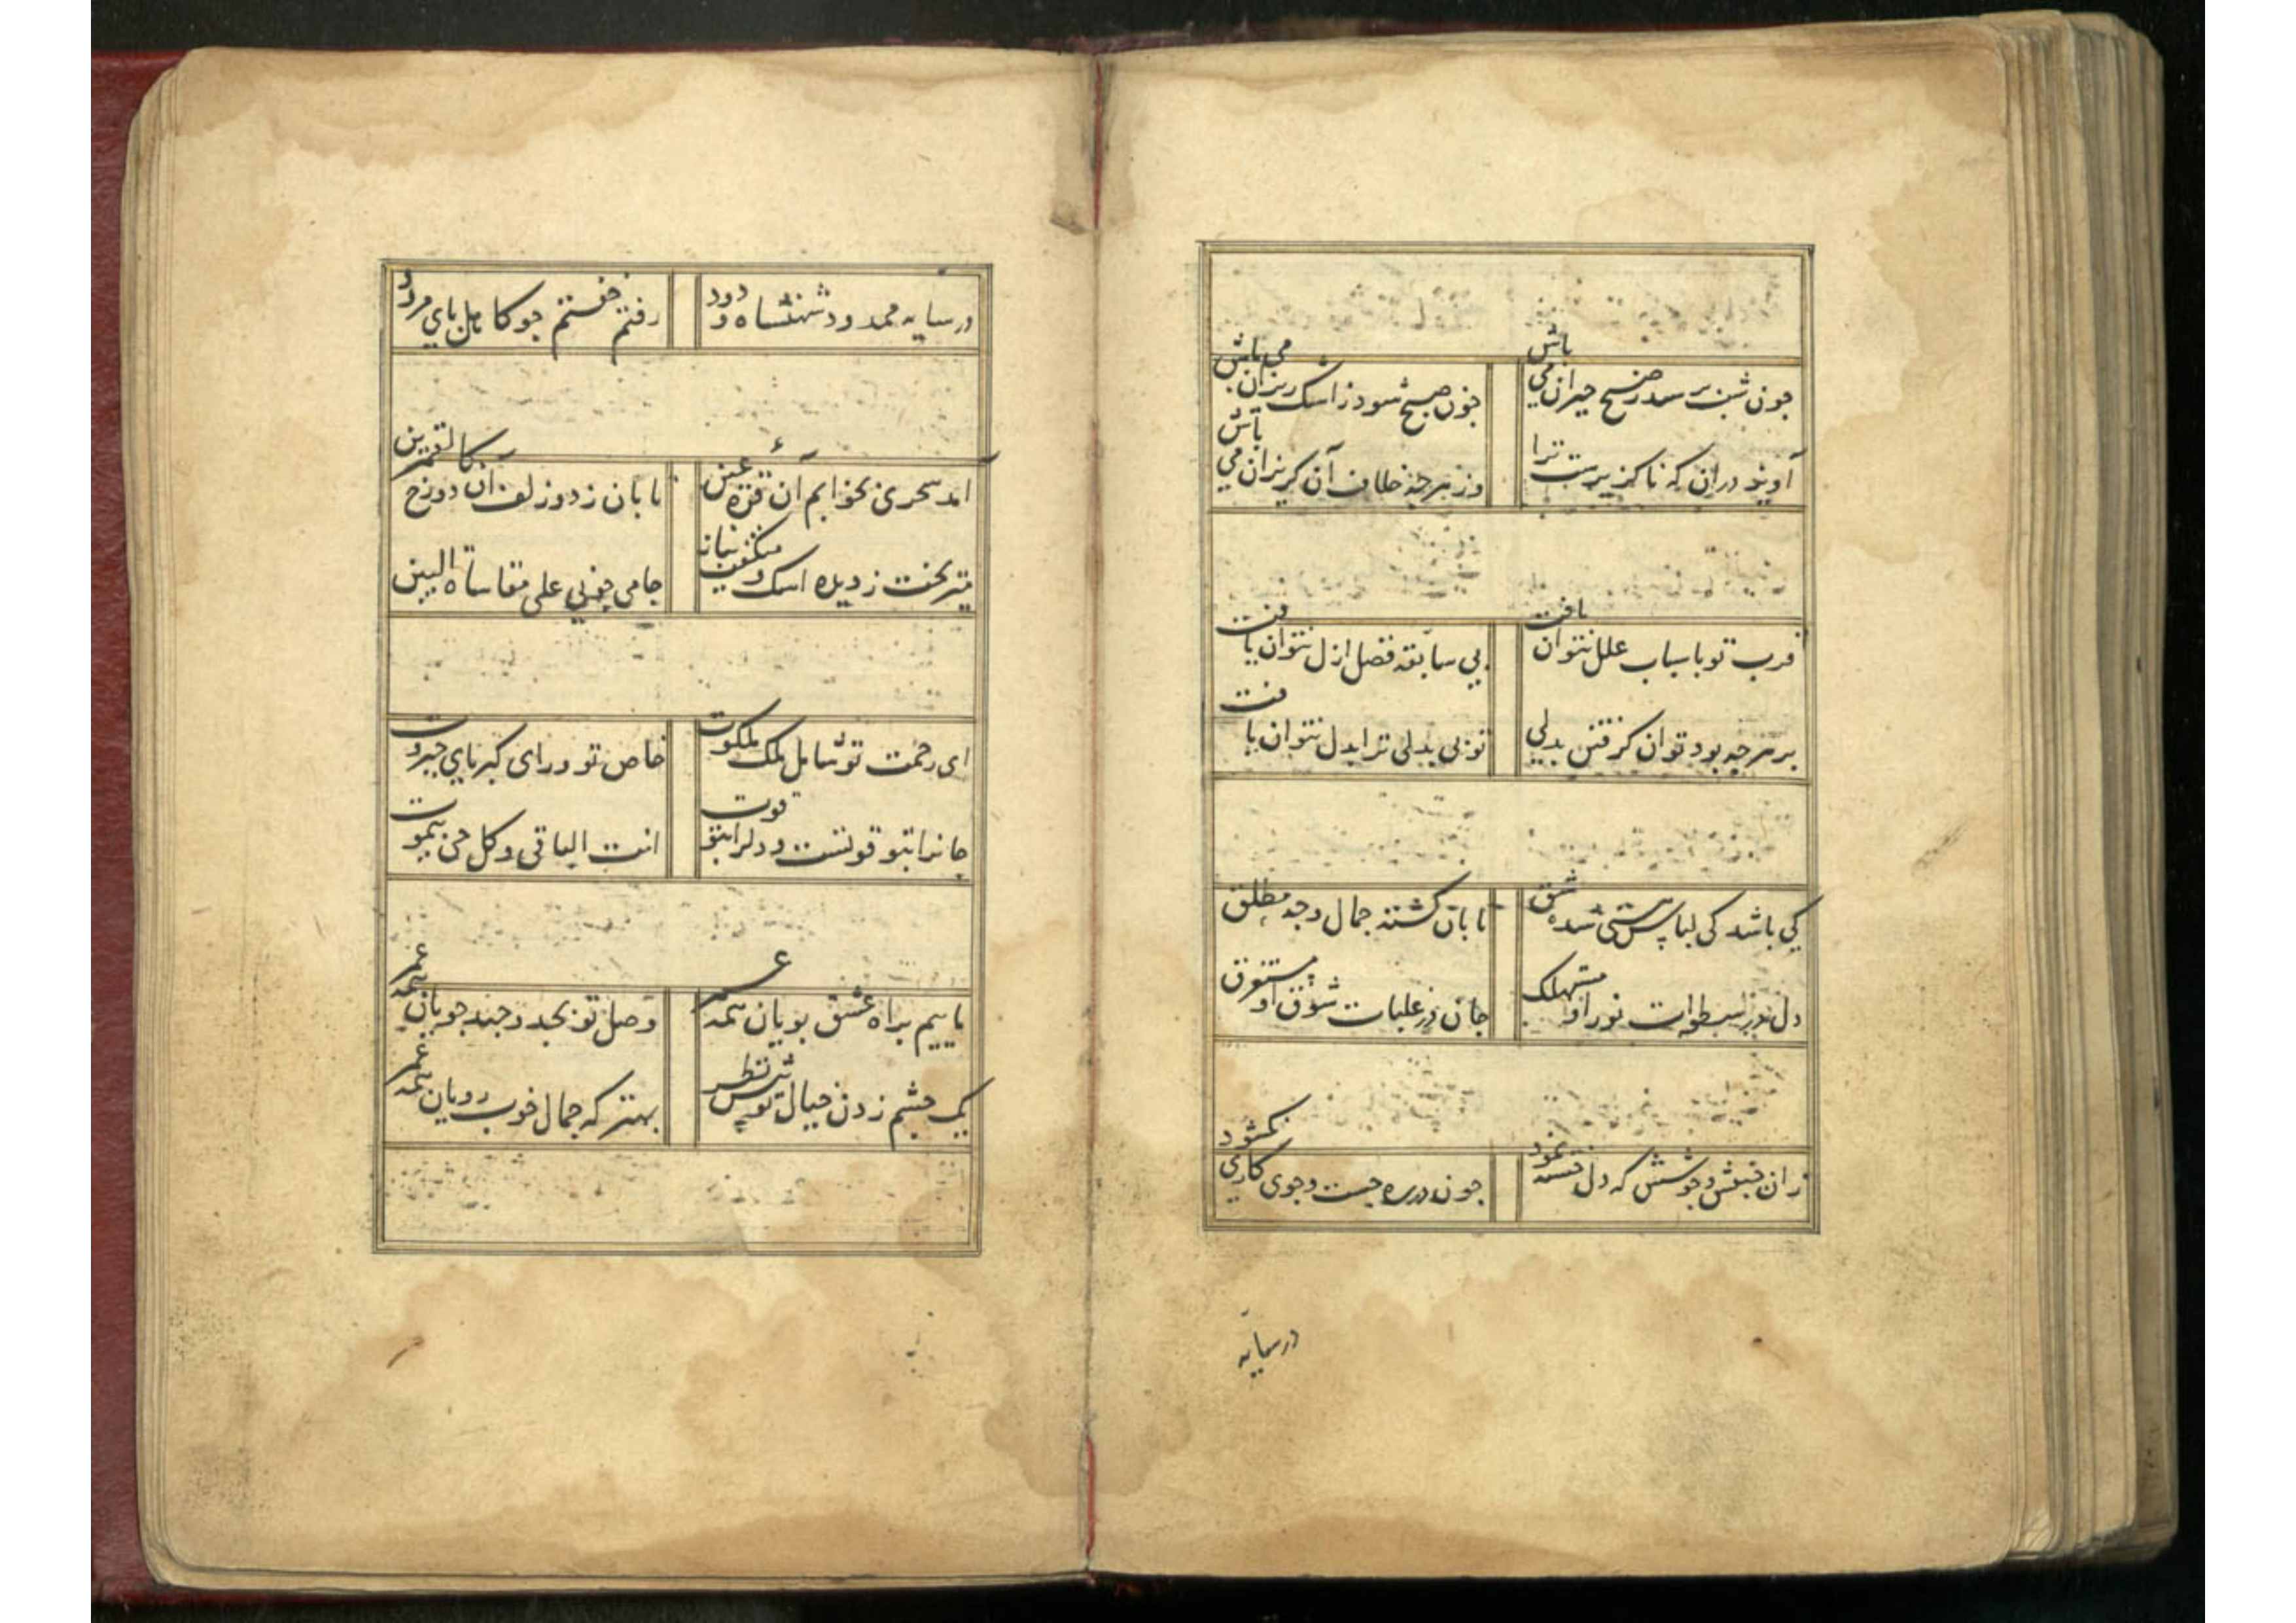 چون شب برسد ز صبح خیزان می باش
چون صبح شود ز اشک ریزان می باش
آویز در آن که ناگزیرست ترا
وز هرچه خلاف آن گریزان می باش
قرب تو باسباب علل نتوان یافت
بی سابقه فضل ازل نتوان یافت
بر هرچه بود توان گرفتن بدلی
تو بی بدلی ترا بدل نتوان یافت
کی باشد کی لباس هستی شده شق
تابان گشته جمال وجه مطلق
دل در سطوات نور او مستهلک
جان در غلبات شوق او مستغرق
زان جنبش و جوشش که دل خسته نمود
چون در ره جست و جوی کاری نگشود
در سایه
در سایه محمدود شهنشاه ودود
رفتم خفتم جو کاهل پای مرود
آمد سحری بخوابم آن قرة عین
تابان ز دو زلف آن دو رخ کالقمرین
میریخت ز دیده اشک و میگفت نیاز
جامی جفنی علی مقاساة البین
ای رحمت تو شامل ملک ملکوت
خاص تو ورای کبریای جبروت
جانرا بتو قوتست و دلرا بتو قوت
انت الباقی و کل حی یموت
ماییم براه عشق پویان همه عمر
وصل تو بجد و جهد جویان همه عمر
یک چشم زدن خیال تو پیش نظر
بهتر که جمال خوب رویان همه عمر